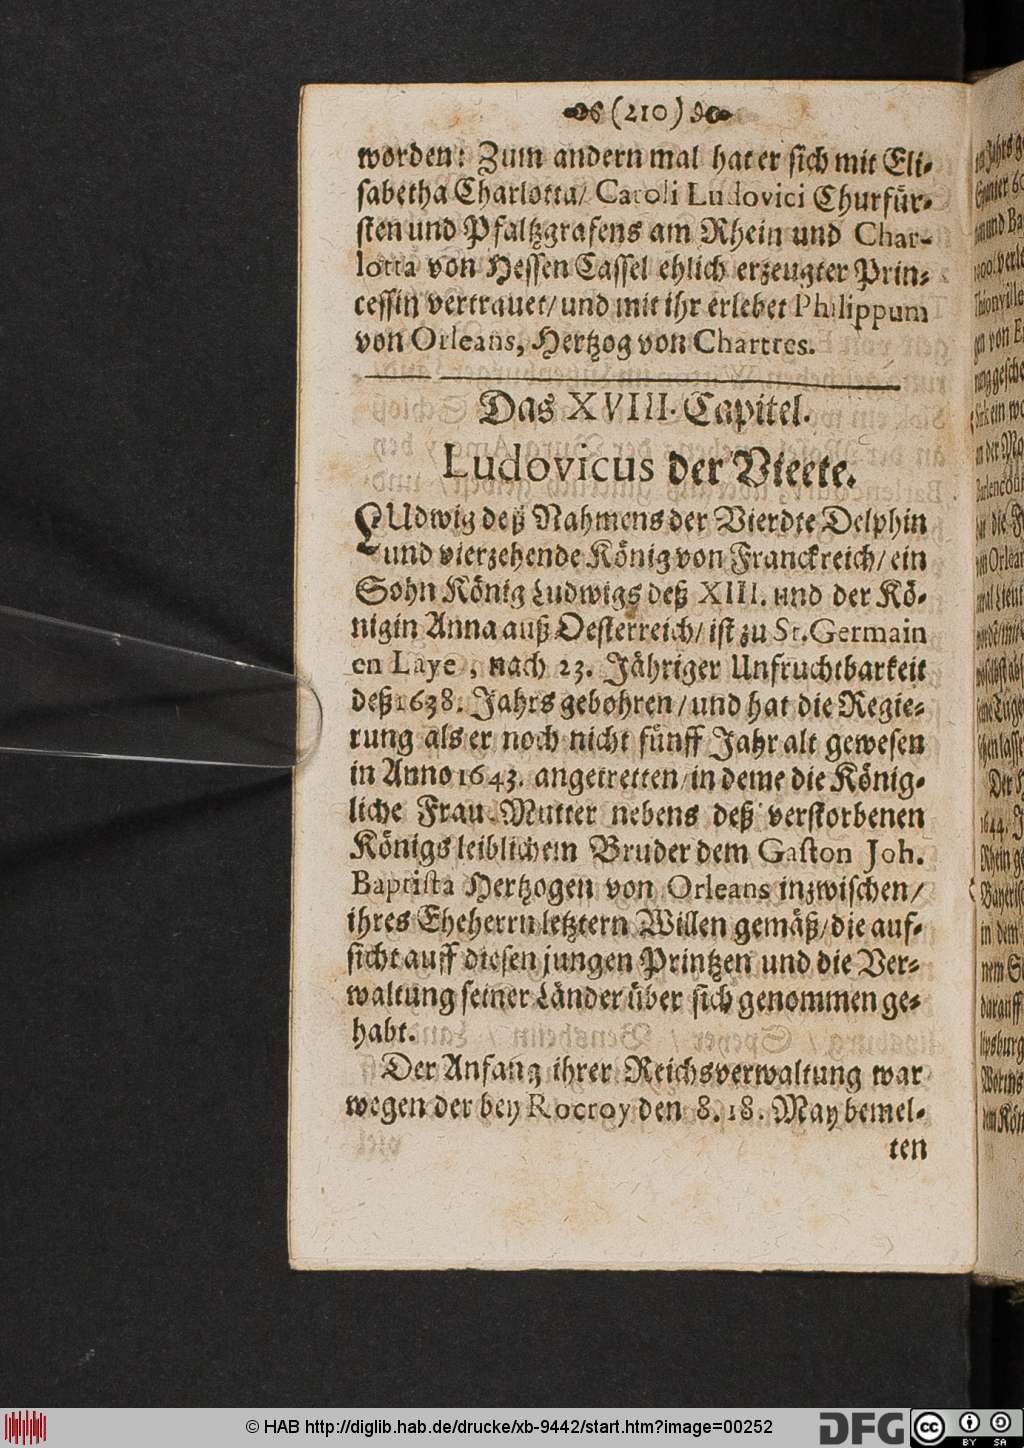 (210)
worden: Zum andern mal hat er sich mit Eli-
sabetha Charlotta/ Caroli Ludovici Churfür-
sten und Pfaltzgrafens am Rhein und Char-
lotta von Hessen Cassel ehlich erzeugter Prin-
cessin vertrauet/ und mit ihr erlebet Philippum
von Orleans, Hertzog von Chartres.
Das XVIII. Capitel.
Ludovicus der Vierte.
LUdwig deß Nahmens der Vierdte Delphin
und vierzehende König von Franckreich/ ein
Sohn König Ludwigs deß XIII. und der Kö-
nigin Anna auß Oesterreich/ ist zu St. Germain
en Laye, nach 23. Jähriger Unfruchtbarkeit
deß 1638. Jahrs gebohren/ und hat die Regie-
rung als er noch nicht fünff Jahr alt gewesen
in Anno 1643. angetretten/ in deme die König-
liche Frau Mutter nebens deß verstorbenen
Königs leiblichem Bruder dem Gaston Joh.
Baptista Hertzogen von Orleans inzwischen/
ihres Eheherrn letztern Willen gemäß/ die auf-
sicht auff diesen jungen Printzen und die Ver-
waltung seiner Länder über sich genommen ge-
habt.
Der Anfang ihrer Reichsverwaltung war
wegen der bey Rocroy den 8. 18. May bemel-
ten
© HAB http://diglib.hab.de/drucke/xb-9442/start.htm?image=00252
DFG
cc BY SA